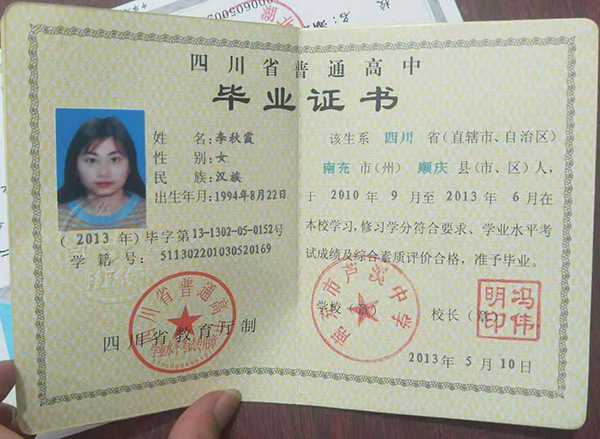 四川省普通高中
毕业证书
姓 名：李秋霞
性 别：女
民 族：汉族
出生年月：1994年8月22日
（2013年）毕字第13-1302-05-0152号
学 籍 号：511302201030520169
四川省教育厅制
四川省普通高中
学业水平考试专用章
该生系 四川 省（直辖市、自治区）
南充 市（州） 顺庆 县（市、区）人，
于 2010 年 9 月至 2013 年 6 月在
本校学习，修习学分符合要求、学业水平考
试成绩及综合素质评价合格，准予毕业。
学校（章）
校长（章）
南充市芦溪中学
冯伟
明印
2013年 5 月 10日